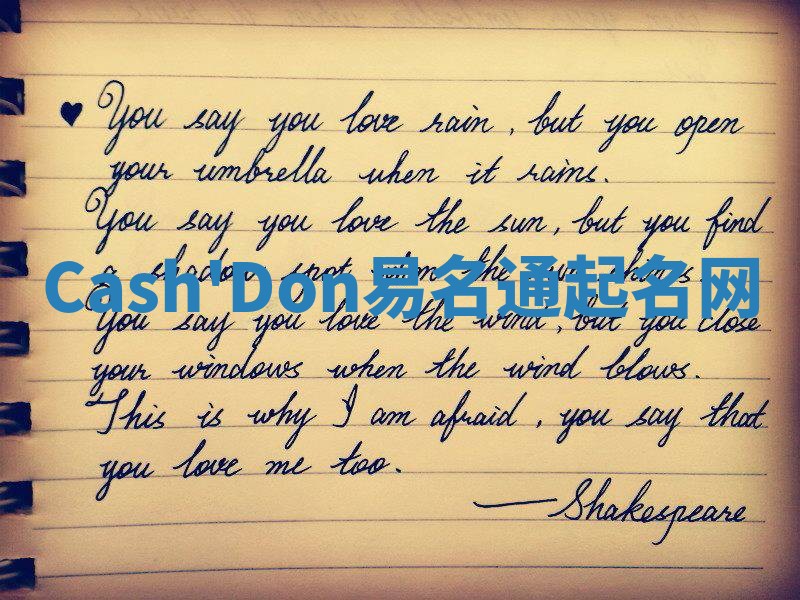 ♥ You say you love rain, but you open
your umbrella when it rains.
You say you love the sun, but you find
a shadow spot when the sun shines.
Cash'Don易名通起名网
You say you love the wind, but you close
your windows when the wind blows.
This is why I am afraid, you say that
you love me too.
— Shakespeare